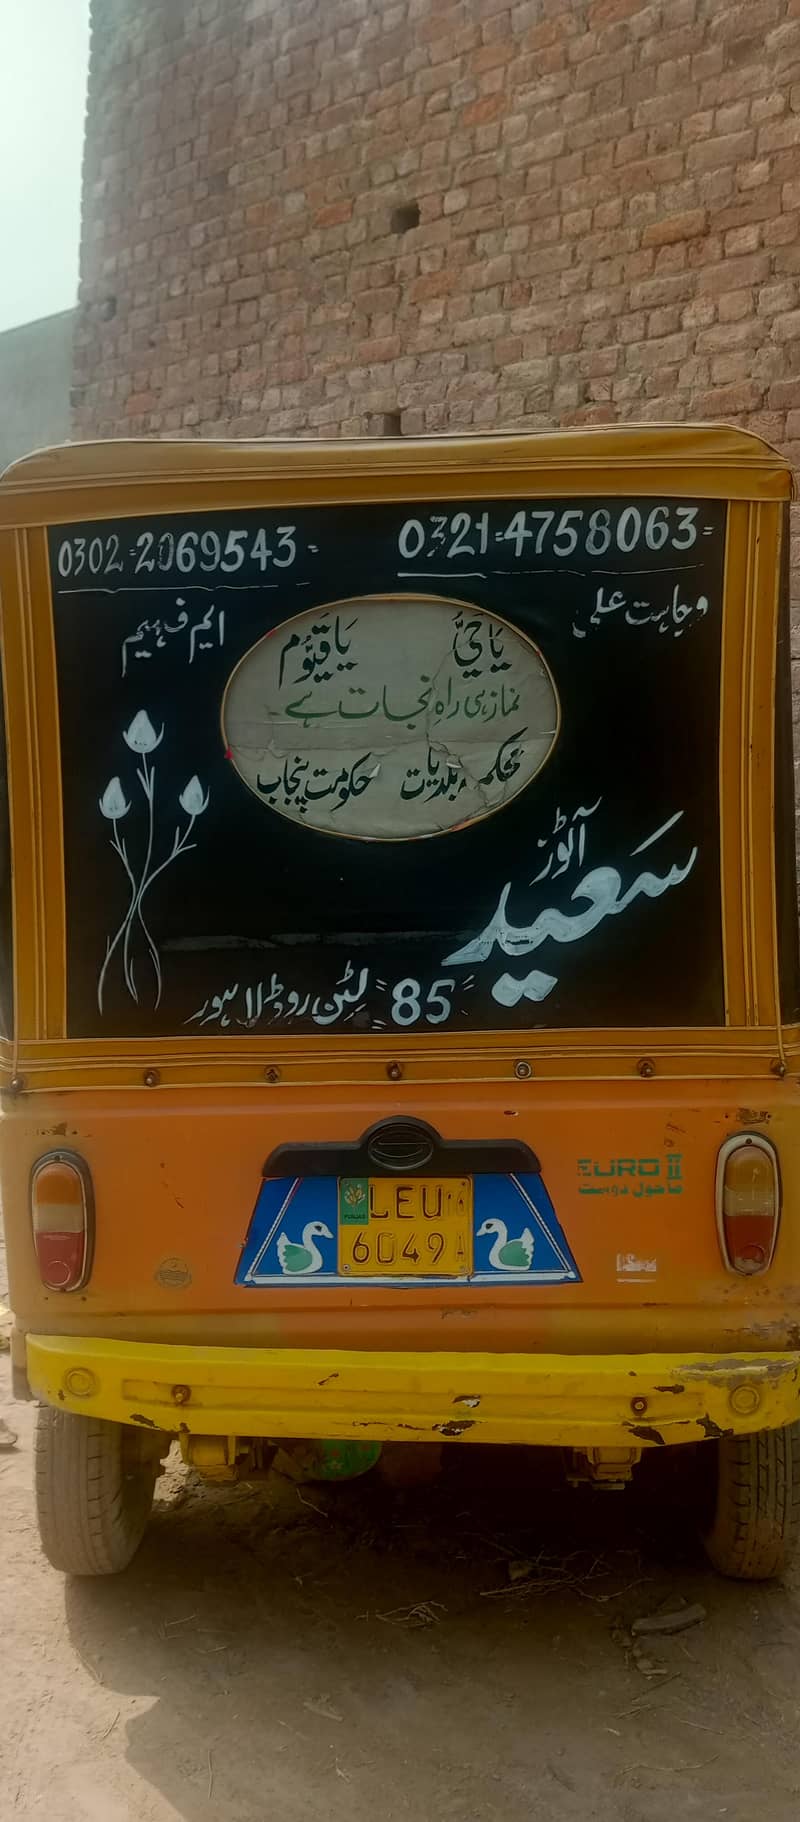 0302=2069543= 0321=4758063=
ایم فہیم وجاہت علی
یَاحَیُّ یَاقَیُّوم
نماز ہی راہِ نجات ہے
محکمہ بلدیات حکومت پنجاب
سعید آٹوز
85 لٹن روڈ لاہور
EURO II
ماحول دوست
PUNJAB
LEU 16
6049 A